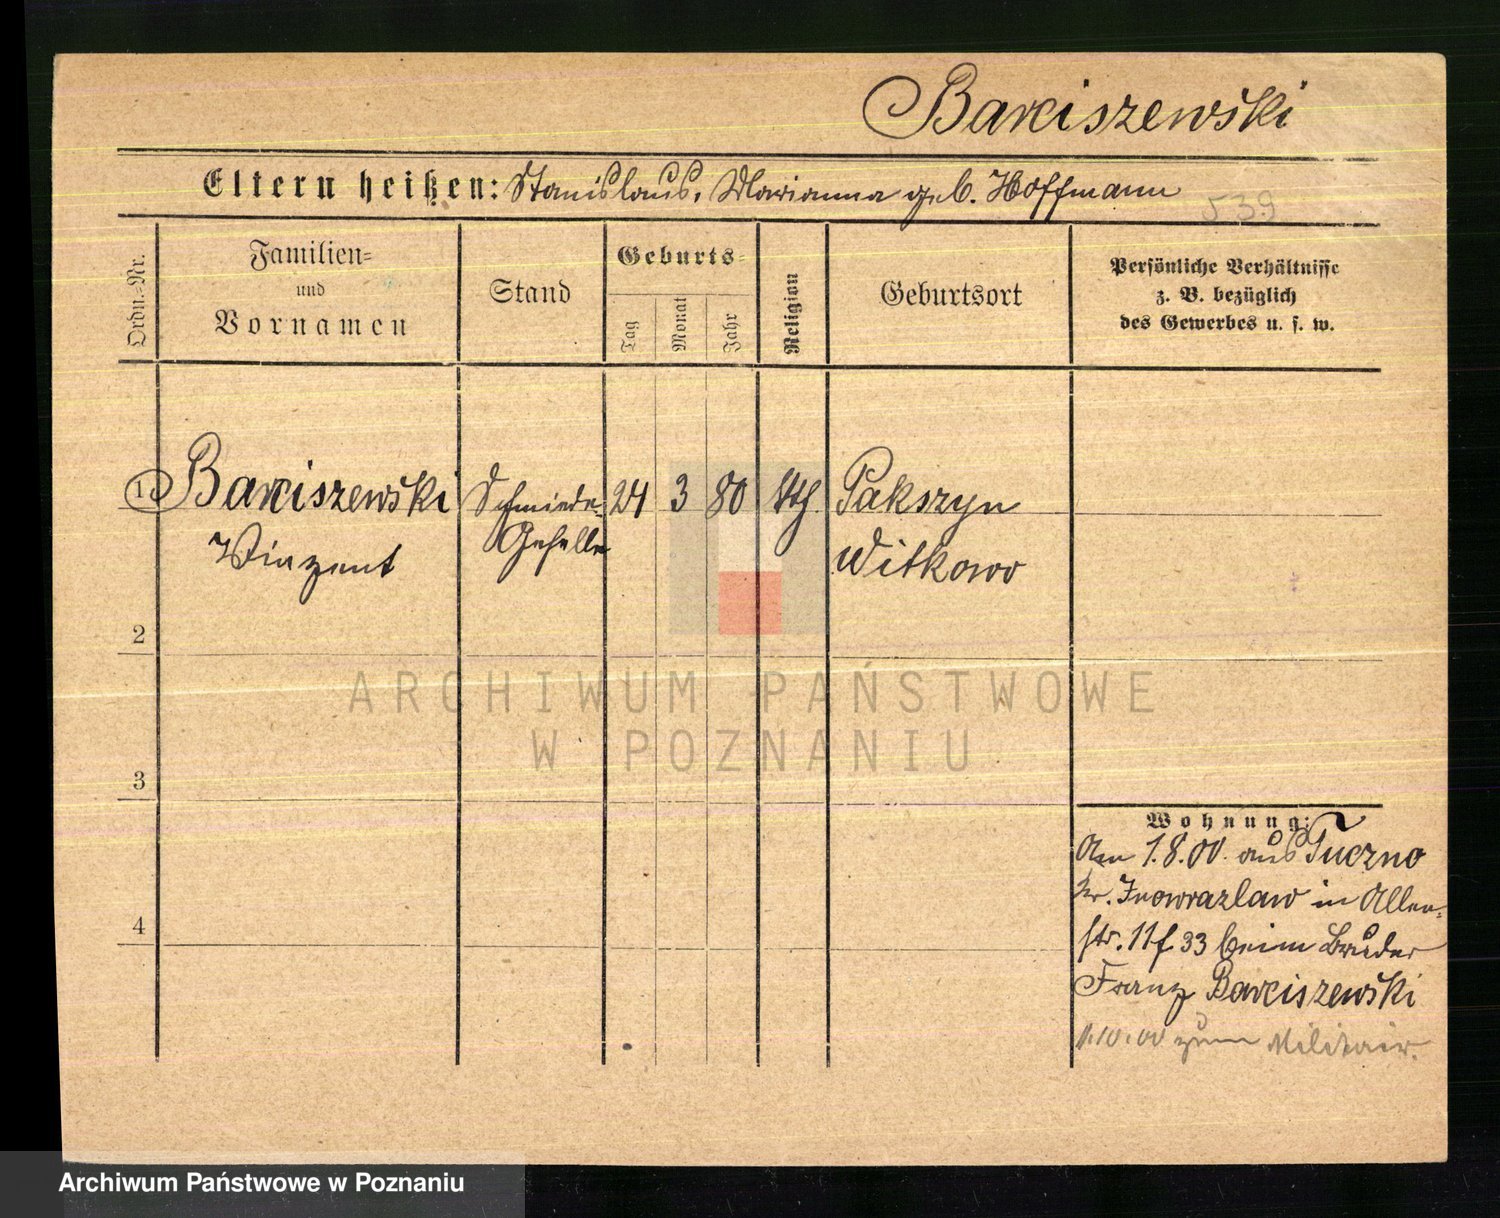 Barciszewski
Eltern heißen: Stanislaus, Marianna geb. Hoffmann
539
Ordn.-Nr.
Familien-
und
Vornamen
Stand
Geburts-
Tag
Monat
Jahr
Religion
Geburtsort
Persönliche Verhältnisse
z. B. bezüglich
des Gewerbes u. s. w.
1 Barciszewski Schmiede- 24 3 80 kth. Pakszyn
Vinzent Geselle Witkowo
2
3
4
Wohnung:
Am 1.8.00. aus Tuczno
Kr. Inowrazlaw in Allee-
str. 11 f 33 beim Bruder
Franz Barciszewski
1.10.00 zum Militair.
ARCHIWUM PAŃSTWOWE
W POZNANIU
Archiwum Państwowe w Poznaniu